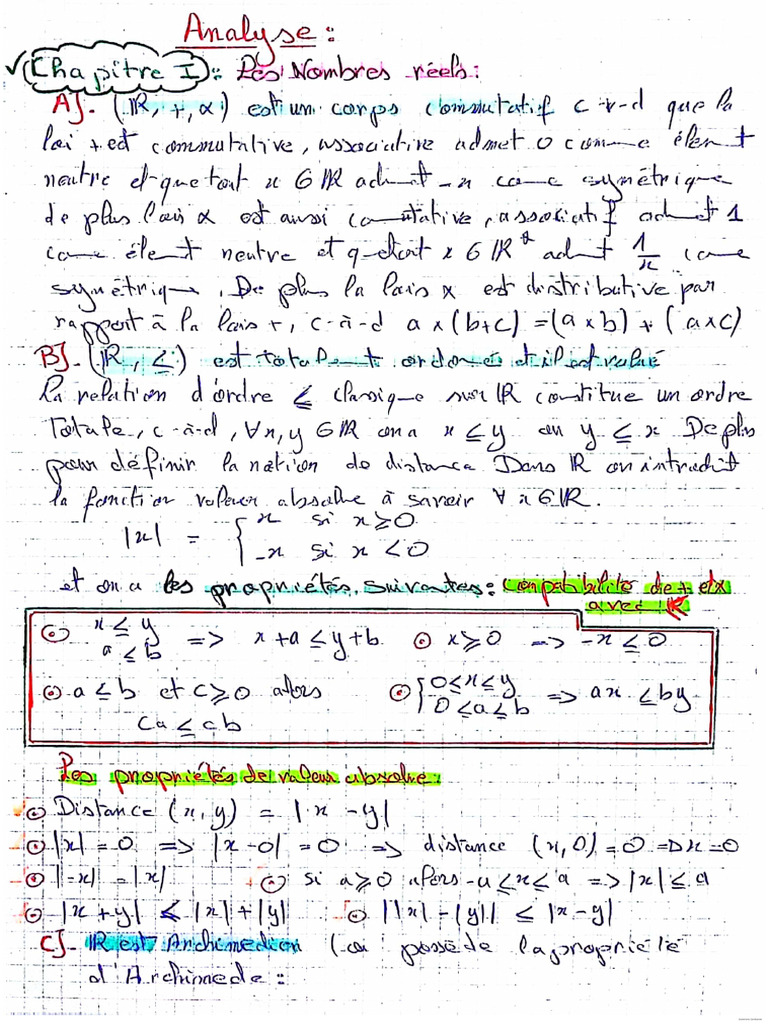 Analyse :
Chapitre I : Les Nombres réels :
A]- (ℝ, +, ×) est un corps commutatif c-à-d que la
loi + est commutative, associative admet 0 comme élémt
neutre et que tout x ∈ ℝ admet -x come symétrique
de plus lais × est aussi comutative, associatif admet 1
come élémt neutre et que tout x ∈ ℝ* admet 1/x come
symétrique. De plus la lais × est distributive par
rapport à la lais +, c-à-d a×(b+c) = (a×b) + (a×c)
B]- (ℝ, ≤) est totalement ordonés et il est valué
La relation d'ordre ≤ classique sur ℝ constitue un ordre
Totale, c-à-d, ∀x,y ∈ ℝ on a x ≤ y ou y ≤ x De plus
pour définir la nation de distance Dans ℝ on introduit
la fonction valeur absolue à savoir ∀ x ∈ ℝ.
|x| = { x si x ≥ 0
-x si x < 0
et on a les propriétés suivantes : compatibilité de + et x
avec ℝ
⊙ x ≤ y
a ≤ b => x+a ≤ y+b ⊙ x ≥ 0 => -x ≤ 0
⊙ a ≤ b et c ≥ 0 alors ⊙ { 0≤x≤y
0≤a≤b => ax ≤ by
ca ≤ cb
Les propriétés de valeur absolue :
⊙ Distance (x,y) = |x-y|
⊙ |x| = 0 => |x-0| = 0 => distance (x,0) = 0 => x = 0
⊙ |-x| = |x| ⊙ si a ≥ 0 alors -a ≤ x ≤ a => |x| ≤ a
⊙ |x+y| ≤ |x|+|y| ⊙ ||x|-|y|| ≤ |x-y|
C]- ℝ est Archimedien ( possède la propriété
d'Archimede :